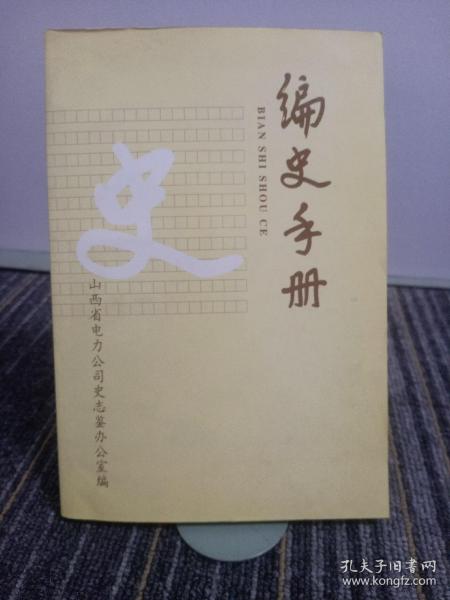 编史手册
BIAN SHI SHOU CE
史
山西省电力公司史志鉴办公室编
孔夫子旧书网
www.kongfz.com